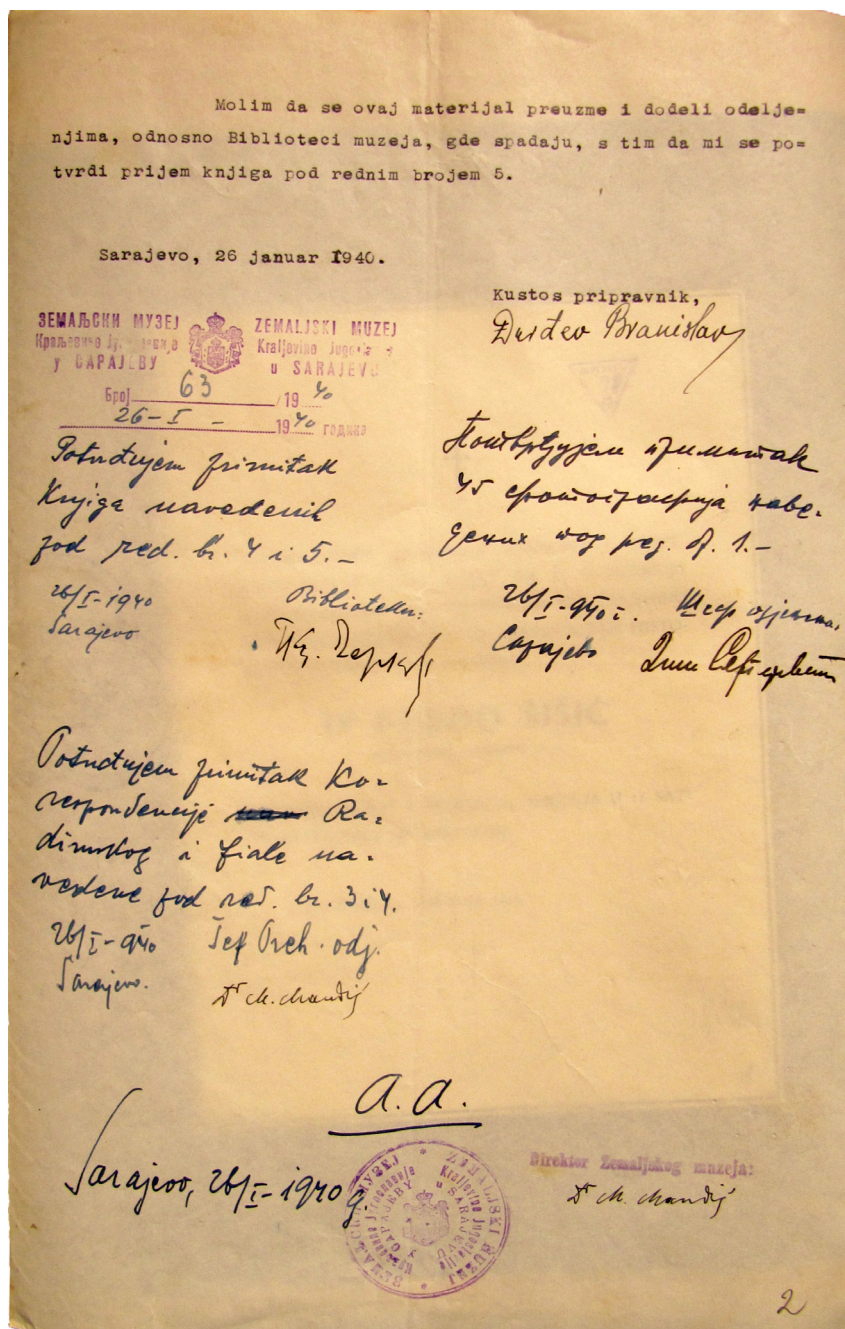 Molim da se ovaj materijal preuzme i dodeli odelje=
njima, odnosno Biblioteci muzeja, gde spadaju, s tim da mi se po=
tvrdi prijem knjiga pod rednim brojem 5.
Sarajevo, 26 januar 1940.
Kustos pripravnik,
Đurđev Branislav
ЗЕМАЉСКИ МУЗЕЈ
Краљевине Југославије
у САРАЈЕВУ
ZEMALJSKI MUZEJ
Kraljevine Jugoslavije
u SARAJEVU
Број 63 /19 40
26-I- 1940 године
Potvrđujem primitak
Knjiga navedenih
pod red. br. 4 i 5.-
26/I-1940
Sarajevo
Bibliotekar:
Потврђујем примитак
45 фотографија наве-
дених под ред. б. 1.-
26/I-940 г. Шеф
Сарајево
Potvrđujem primitak Ko=
respondencije Ra=
dimskog i Fiale na=
vedene pod red. br. 3 i 4.
26/I-940 Šef Arh. odj.
Sarajevo.
Dr M. Mandić
a.a.
Sarajevo, 26/I-1940 g.
ЗЕМАЉСКИ МУЗЕЈ
Краљевине Југославије
у САРАЈЕВУ
ZEMALJSKI MUZEJ
Kraljevine Jugoslavije
u SARAJEVU
Direktor Zemaljskog muzeja:
Dr M. Mandić
2